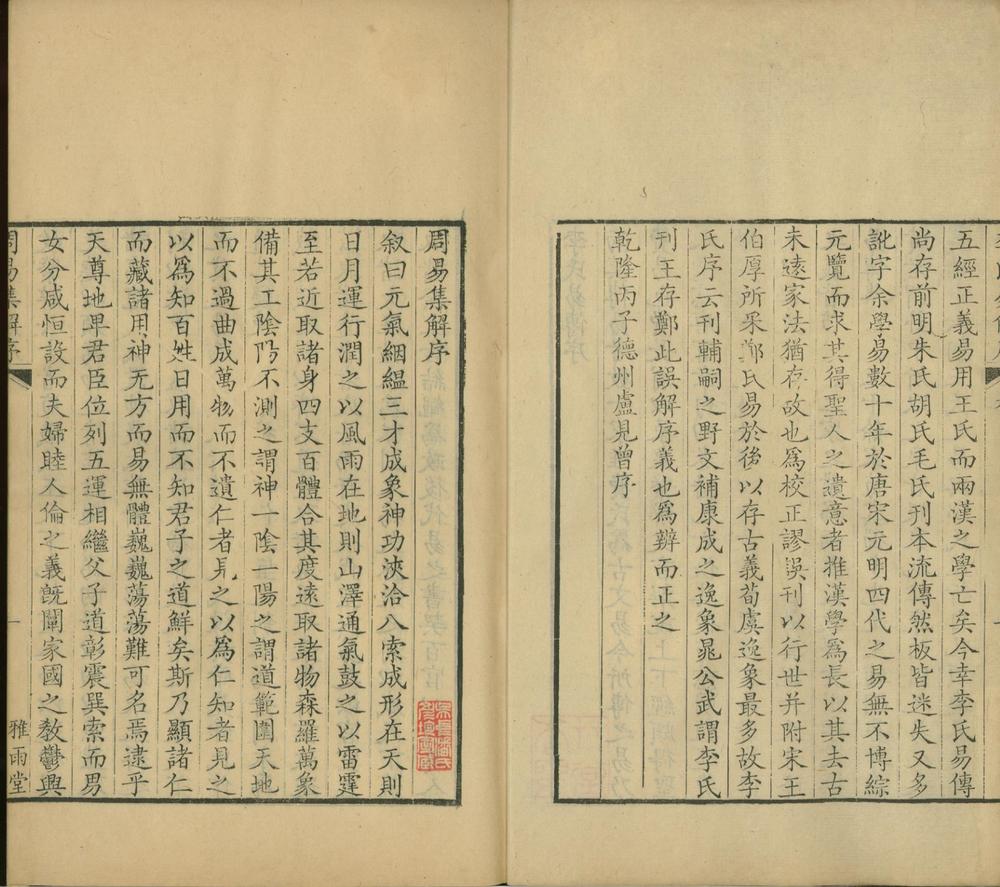 五經正義易用王氏而兩漢之學亡矣今幸李氏易傳
尚存前明朱氏胡氏毛氏刊本流傳然板皆迷失又多
訛字余學易數十年於唐宋元明四代之易無不博綜
元覽而求其得聖人之遺意者推漢學爲長以其去古
未遠家法猶存故也爲校正謬誤刊以行世并附宋王
伯厚所采鄭氏易於後以存古義荀虞逸象最多故李
氏序云刊輔嗣之野文補康成之逸象晁公武謂李氏
刊王存鄭此誤解序義也爲辨而正之
乾隆丙子德州盧見曾序
周易集解序
叙曰元氣絪縕三才成象神功浹洽八索成形在天則
日月運行潤之以風雨在地則山澤通氣鼓之以雷霆
至若近取諸身四支百體合其度遠取諸物森羅萬象
備其工陰陽不測之謂神一陰一陽之謂道範圍天地
而不過曲成萬物而不遺仁者見之以爲仁知者見之
以爲知百姓日用而不知君子之道鮮矣斯乃顯諸仁
而藏諸用神无方而易無體巍巍蕩蕩難可名焉逮乎
天尊地卑君臣位列五運相繼父子道彰震巽索而男
女分咸恒設而夫婦睦人倫之義既闡家國之教鬱興
周易集解序
一
雅雨堂